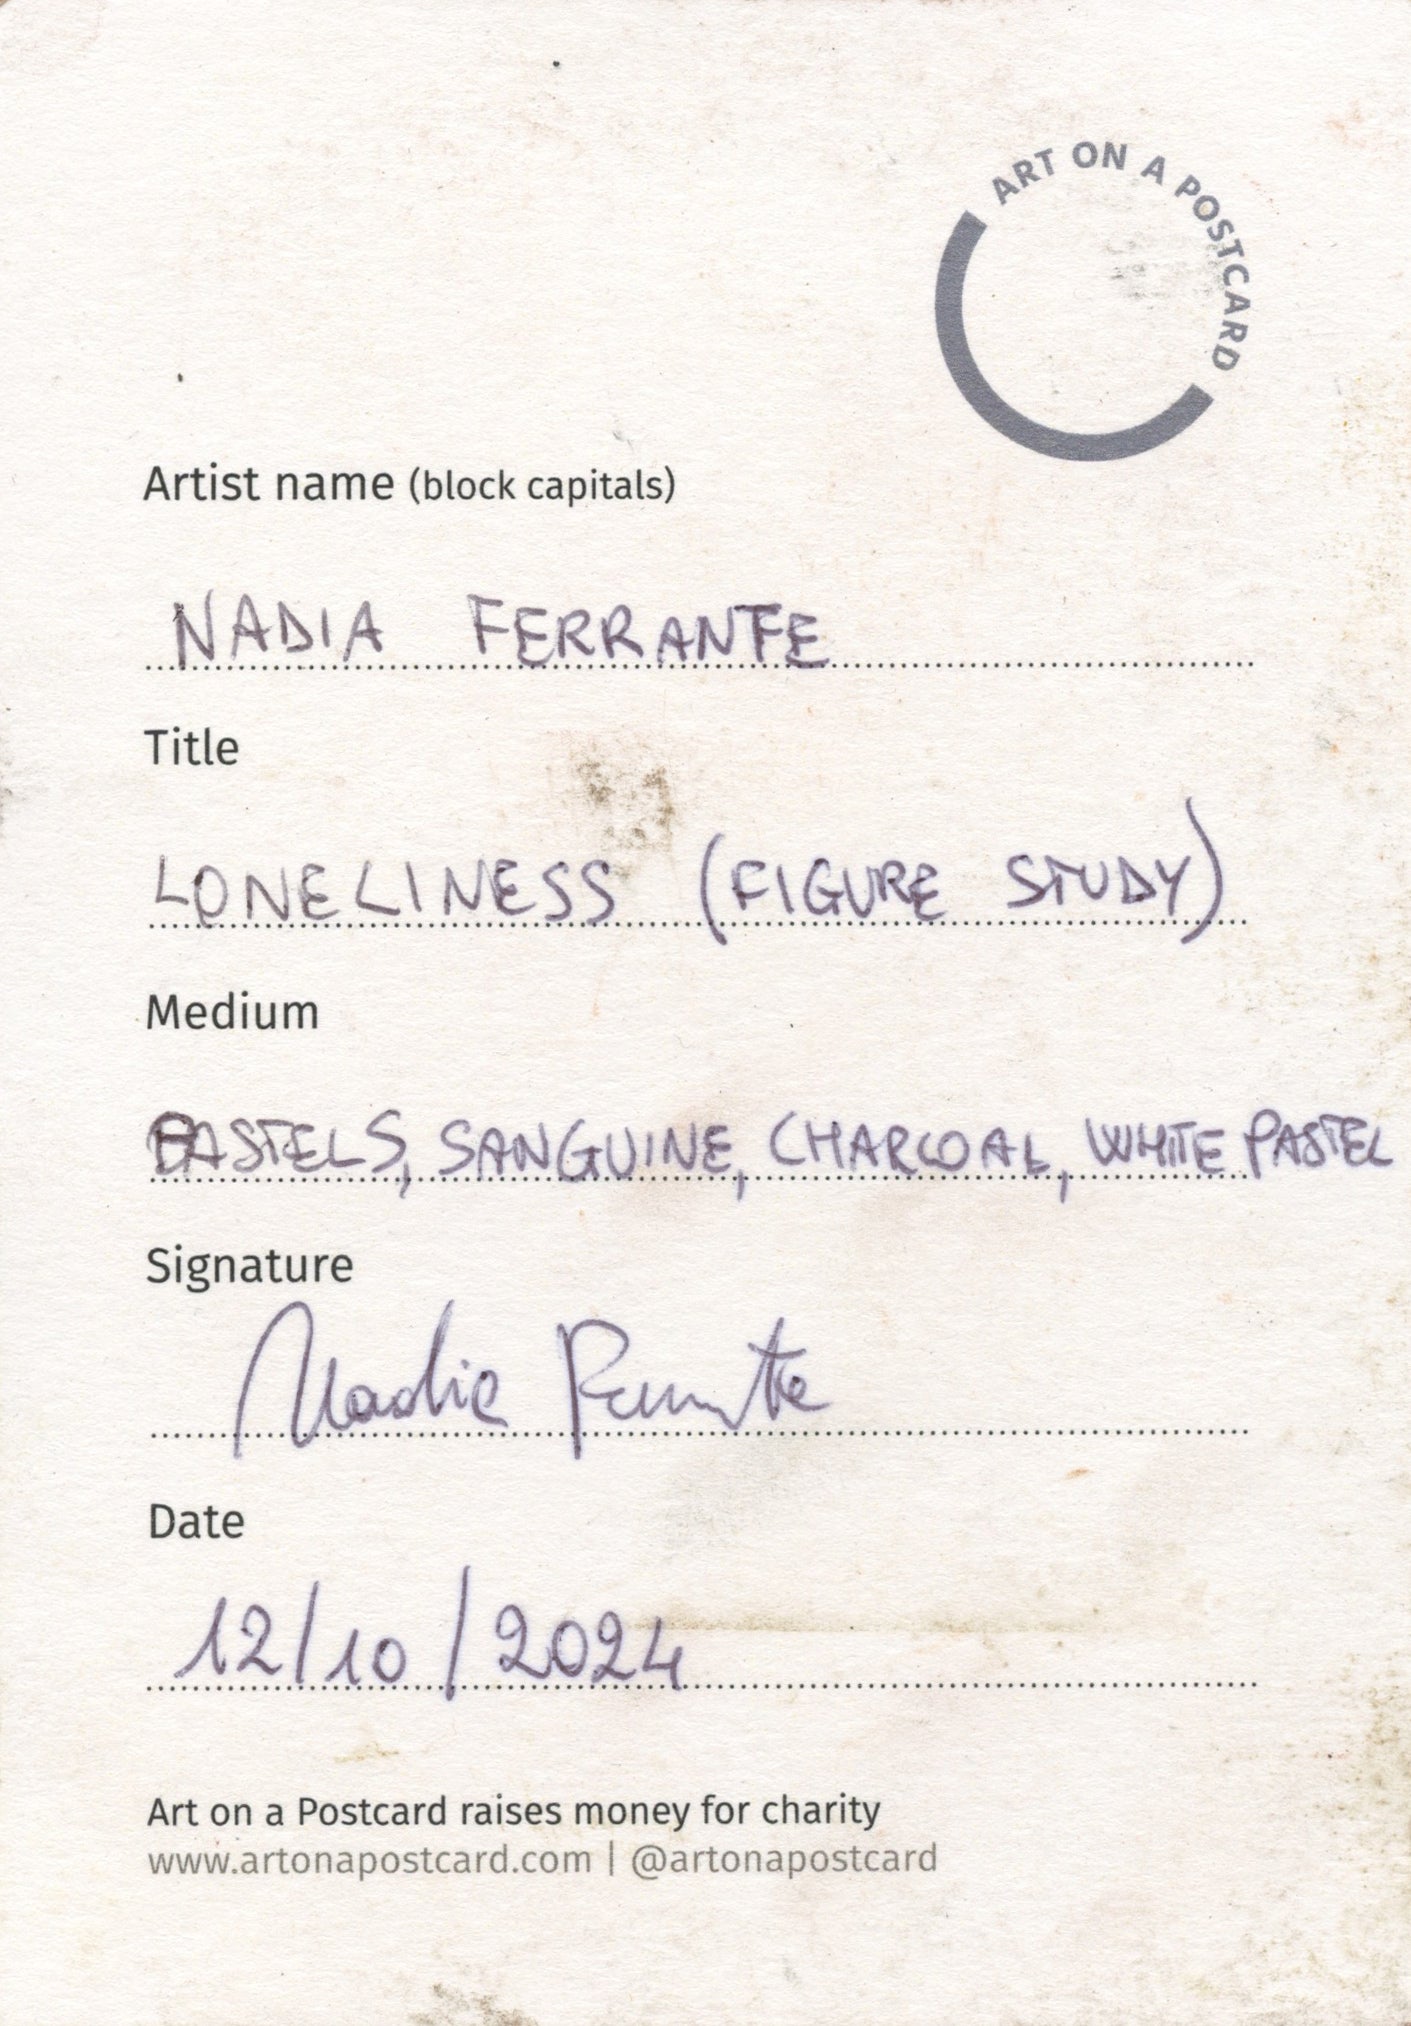 ART ON A POSTCARD
Artist name (block capitals)
NADIA FERRANTE
Title
LONELINESS (FIGURE STUDY)
Medium
PASTELS, SANGUINE, CHARCOAL, WHITE PASTEL
Signature
Nadia Ferrante
Date
12/10/2024
Art on a Postcard raises money for charity
www.artonapostcard.com | @artonapostcard